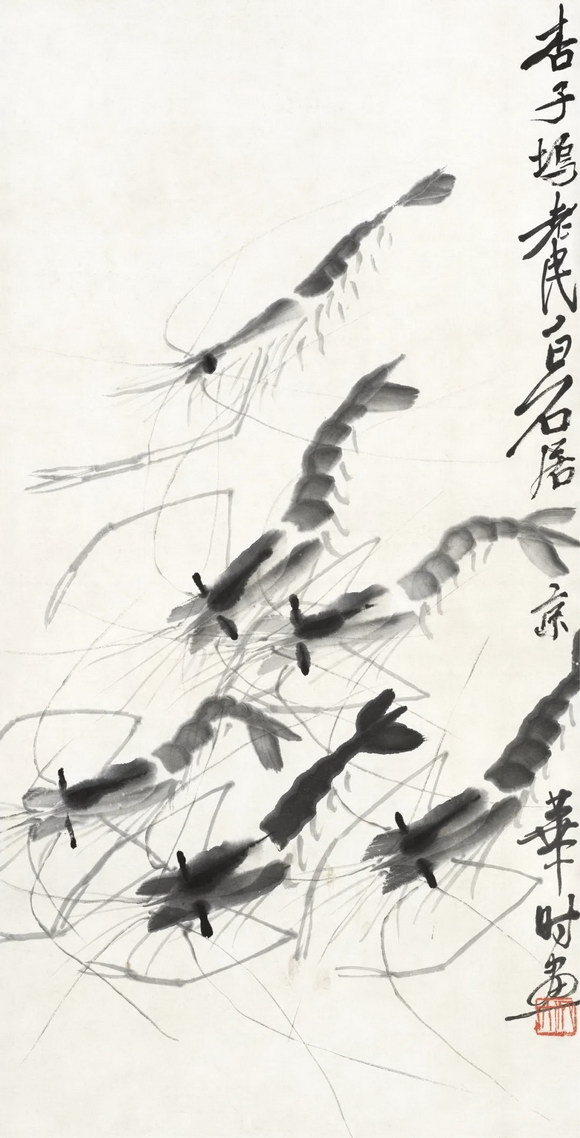 杏子塢老民白石居京華时画